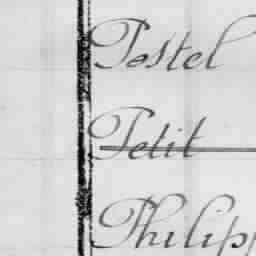 Postel
Petit
Philipp